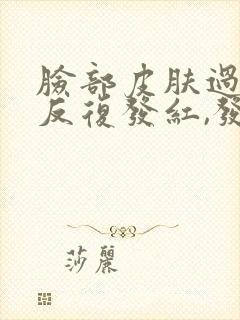 臉部皮肤過
反復發紅,發
莎麗